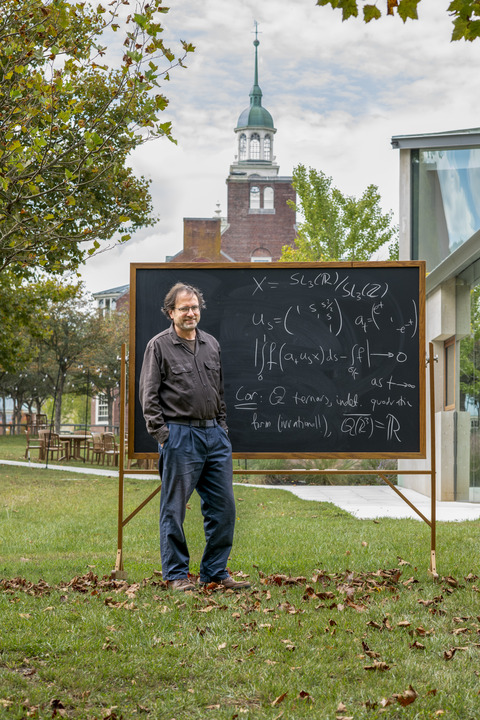 X = SL₃(ℝ)/SL₃(ℤ)
u_s = (1 s s²/2 s 1) a_t(e^t, 1, e^-t)
|∫₀¹ f(a_t u_s x) ds - ∫f| → 0
as t→∞
Cor: Q ternary, indef. quadratic
form (irrational), Q(ℤ³) = ℝ